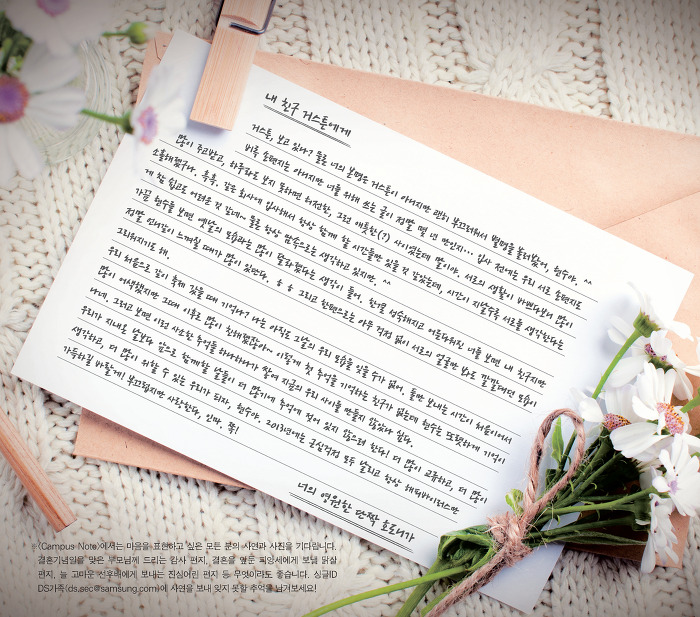 내 친구 거스톤에게
거스톤, 보고 있나? 물론 너의 본명은 거스톤이 아니지만 괜히 부끄러워서 별명을 불러봤어, 현수야. ^^
비록 손편지는 아니지만 너를 위해 쓰는 글이 정말 몇 년 만인지… 입사 전에는 우리 서로 손편지도
많이 주고받고, 하루라도 보지 못하면 허전한, 그런 애틋한(?) 사이였는데 말이야. 서로의 생활이 바쁘다보니 많이
소홀해졌구나. 흑흑. 같은 회사에 입사해서 항상 함께 할 시간들만 있을 것 같았는데, 시간이 지날수록 서로를 생각한다는
게 참 쉽고도 어려운 것 같네~ 물론 항상 맘속으로는 생각하고 있지만. ^^
가끔 현수를 보면 옛날의 모습과는 많이 달라졌다는 생각이 들어. 한결 성숙해지고 어른다워진 너를 보면 내 친구지만
정말 언니같이 느껴질 때가 많이 있단다. ㅎㅎ 그리고 한편으로는 아무 걱정 없이 서로의 얼굴만 봐도 깔깔대던 모습이
그리워지기도 해.
우리 처음으로 같이 축제 갔을 때 기억나? 나는 아직도 그날의 우리 모습을 잊을 수가 없어. 둘만 보내는 시간이 처음이어서
많이 어색했지만 그때 이후로 많이 친해졌잖아~ 이렇게 첫 추억을 기억하는 친구가 없는데 현수는 또렷하게 기억이
나네. 그러고 보면 이런 사소한 추억들 하나하나가 쌓여 지금의 우리 사이를 만들지 않았나 싶다.
우리가 지내온 날보다 앞으로 함께할 날들이 더 많기에 추억에 젖어 있지 않으려 한다! 더 많이 교류하고, 더 많이
생각하고, 더 많이 위할 수 있는 우리가 되자, 현수야. 2013년에는 근심걱정 모두 날리고 항상 해피바이러스만
가득하길 바랄게! 부끄럽지만 사랑한다, 인마. 쪽!
너의 영원한 단짝 호르니가
※〈Campus Note〉에서는 마음을 표현하고 싶은 모든 분의 사연과 사진을 기다립니다.
결혼기념일을 맞은 부모님께 드리는 감사 편지, 결혼을 앞둔 피앙세에게 보낼 닭살
편지, 늘 고마운 선후배에게 보내는 진심어린 편지 등 무엇이라도 좋습니다. 싱글ID
DS가족(ds.sec@samsung.com)에 사연을 보내 잊지 못할 추억을 남겨보세요!